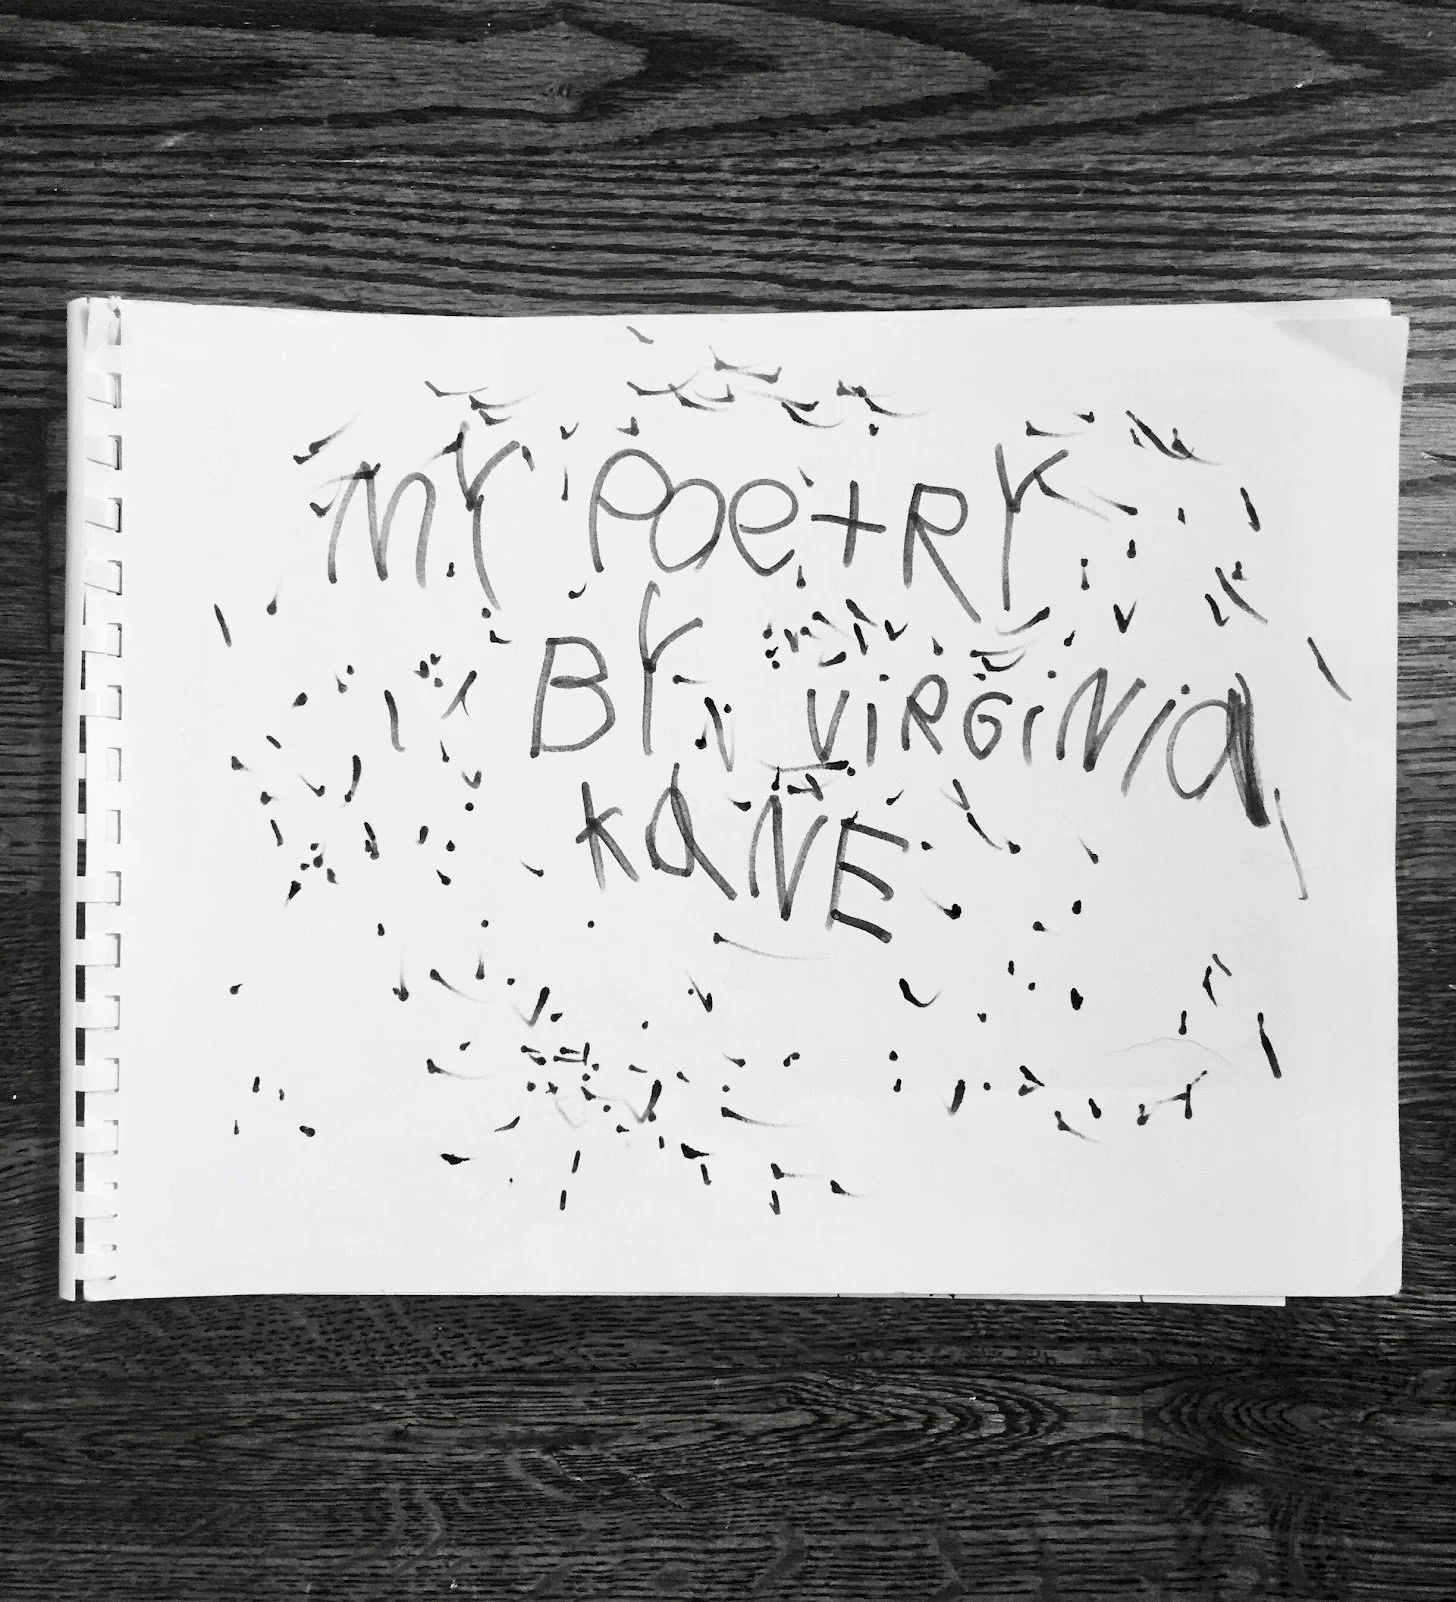 MY POetRY
BY VIRGiNia
KaNE